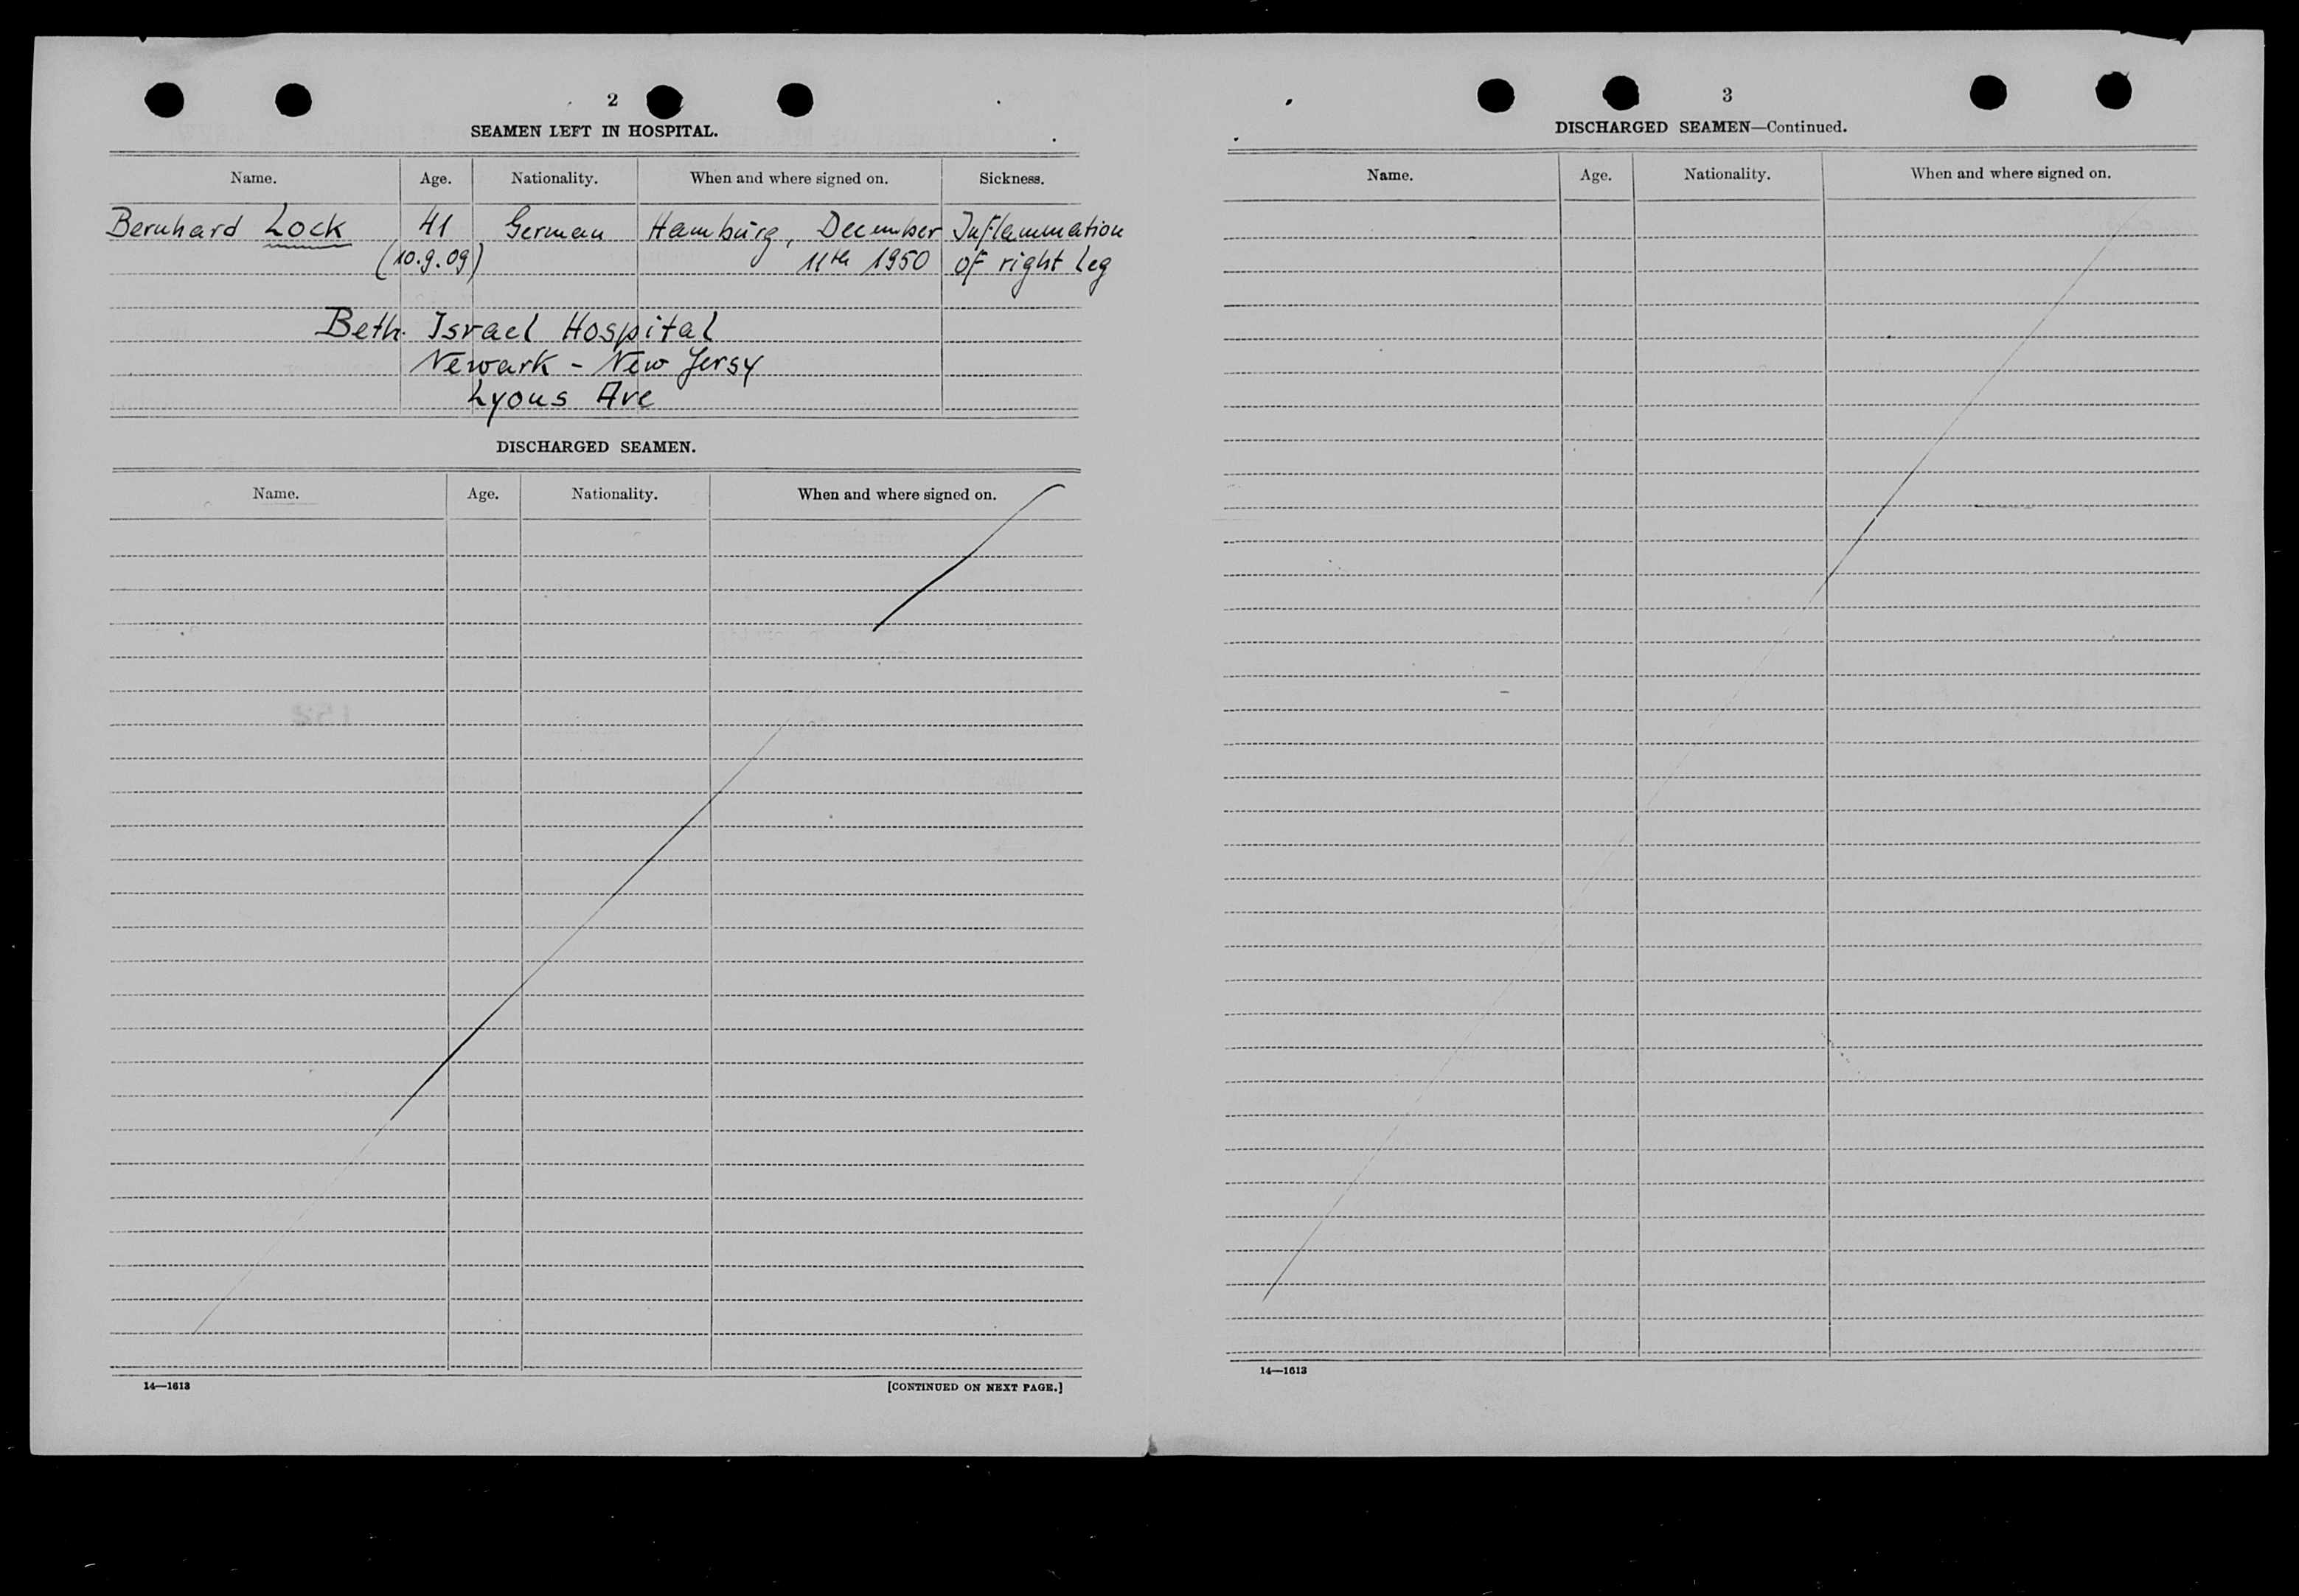 2
SEAMEN LEFT IN HOSPITAL.
Name. Age. Nationality. When and where signed on. Sickness.
Bernhard Lock 41 German Hamburg, December Inflammation
(10.9.09) 11th 1950 of right leg
Beth. Israel Hospital
Newark - New Jersy
Lyons Ave
DISCHARGED SEAMEN.
Name. Age. Nationality. When and where signed on.
14—1613 [CONTINUED ON NEXT PAGE.]
3
DISCHARGED SEAMEN—Continued.
Name. Age. Nationality. When and where signed on.
14—1613